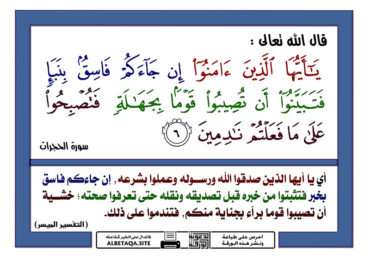 قال الله تعالى :
يَٰٓأَيُّهَا ٱلَّذِينَ ءَامَنُوٓا۟ إِن جَآءَكُمْ فَاسِقٌۢ بِنَبَإٍ
فَتَبَيَّنُوٓا۟ أَن تُصِيبُوا۟ قَوْمًۢا بِجَهَٰلَةٍ فَتُصْبِحُوا۟
عَلَىٰ مَا فَعَلْتُمْ نَٰدِمِينَ ٦
سورة الحجرات
أي يا أيها الذين صدقوا الله ورسوله وعملوا بشرعه , إن جاءكم فاسق
بخبر فتثبتوا من خبره قبل تصديقه ونقله حتى تعرفوا صحته؛ خشية
أن تصيبوا قوما برآء بجناية منكم, فتندموا على ذلك.
( التفسير الميسر )
احرص على طباعة
ونشر هذه الورقة
فالدال على الخير كفاعله
ALBETAQA.SITE